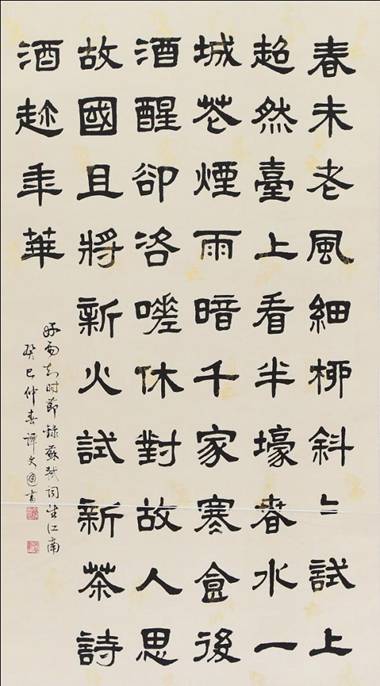 春未老風細柳斜々試上
超然臺上看半壕春水一
城花煙雨暗千家寒食後
酒醒卻咨嗟休對故人思
故國且將新火試新茶詩
酒趁年華
好雨知时節錄蘇軾詞望江南
癸巳仲春譚文書